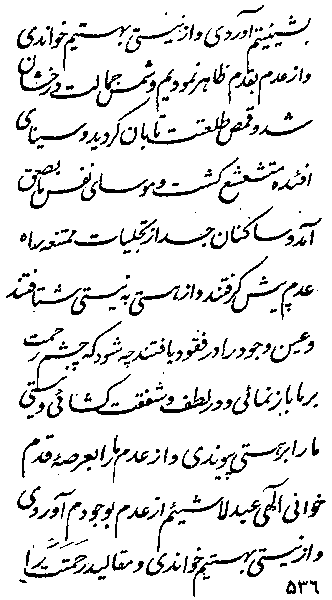 بشیئیتم آوردی و از نیستی بهستیم خواندی
و از عدم بقدم ظاهر نمودیم و شمس جمالت درخشان
شد و قمص طلعتت تابان گردید و سینای
افئده متشعشع گشت و موسای نفس مانصعق
آمد و ساکنان جسد از تجلیات ممتعه براه
عدم پیش گرفتند و از هستی به نیستی شتافتند
و عین وجود را در فقود یافتند چه شود که چشم رحمت
بر ما باز نمائی و در لطف و شفقت گشائی و نیستی
ما را بر هستی پیوندی و از عدم ما را بعرصهٔ قدم
خوانی الهی عبد لا شیئم از عدم بوجودم آوردی
و از نیستی بهستیم خواندی و مقالید رحمتت را
٥٣٦